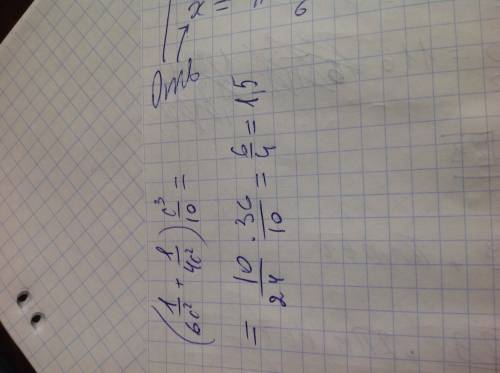 Отв → x
(1/6c² + 1/4c²) c³/10 =
= 10/24 · 36/10 = 6/4 = 1,5